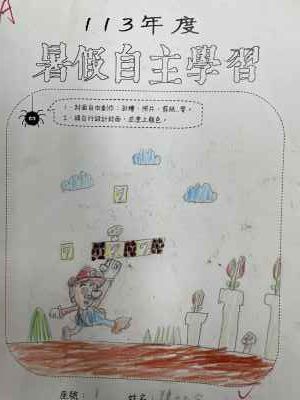 A
113年度
暑假自主學習
1. 封面自由創作：彩繪、照片、剪紙…等。
2. 請自行設計封面，並塗上顏色。
?
? ? ?
座號：1
姓名：